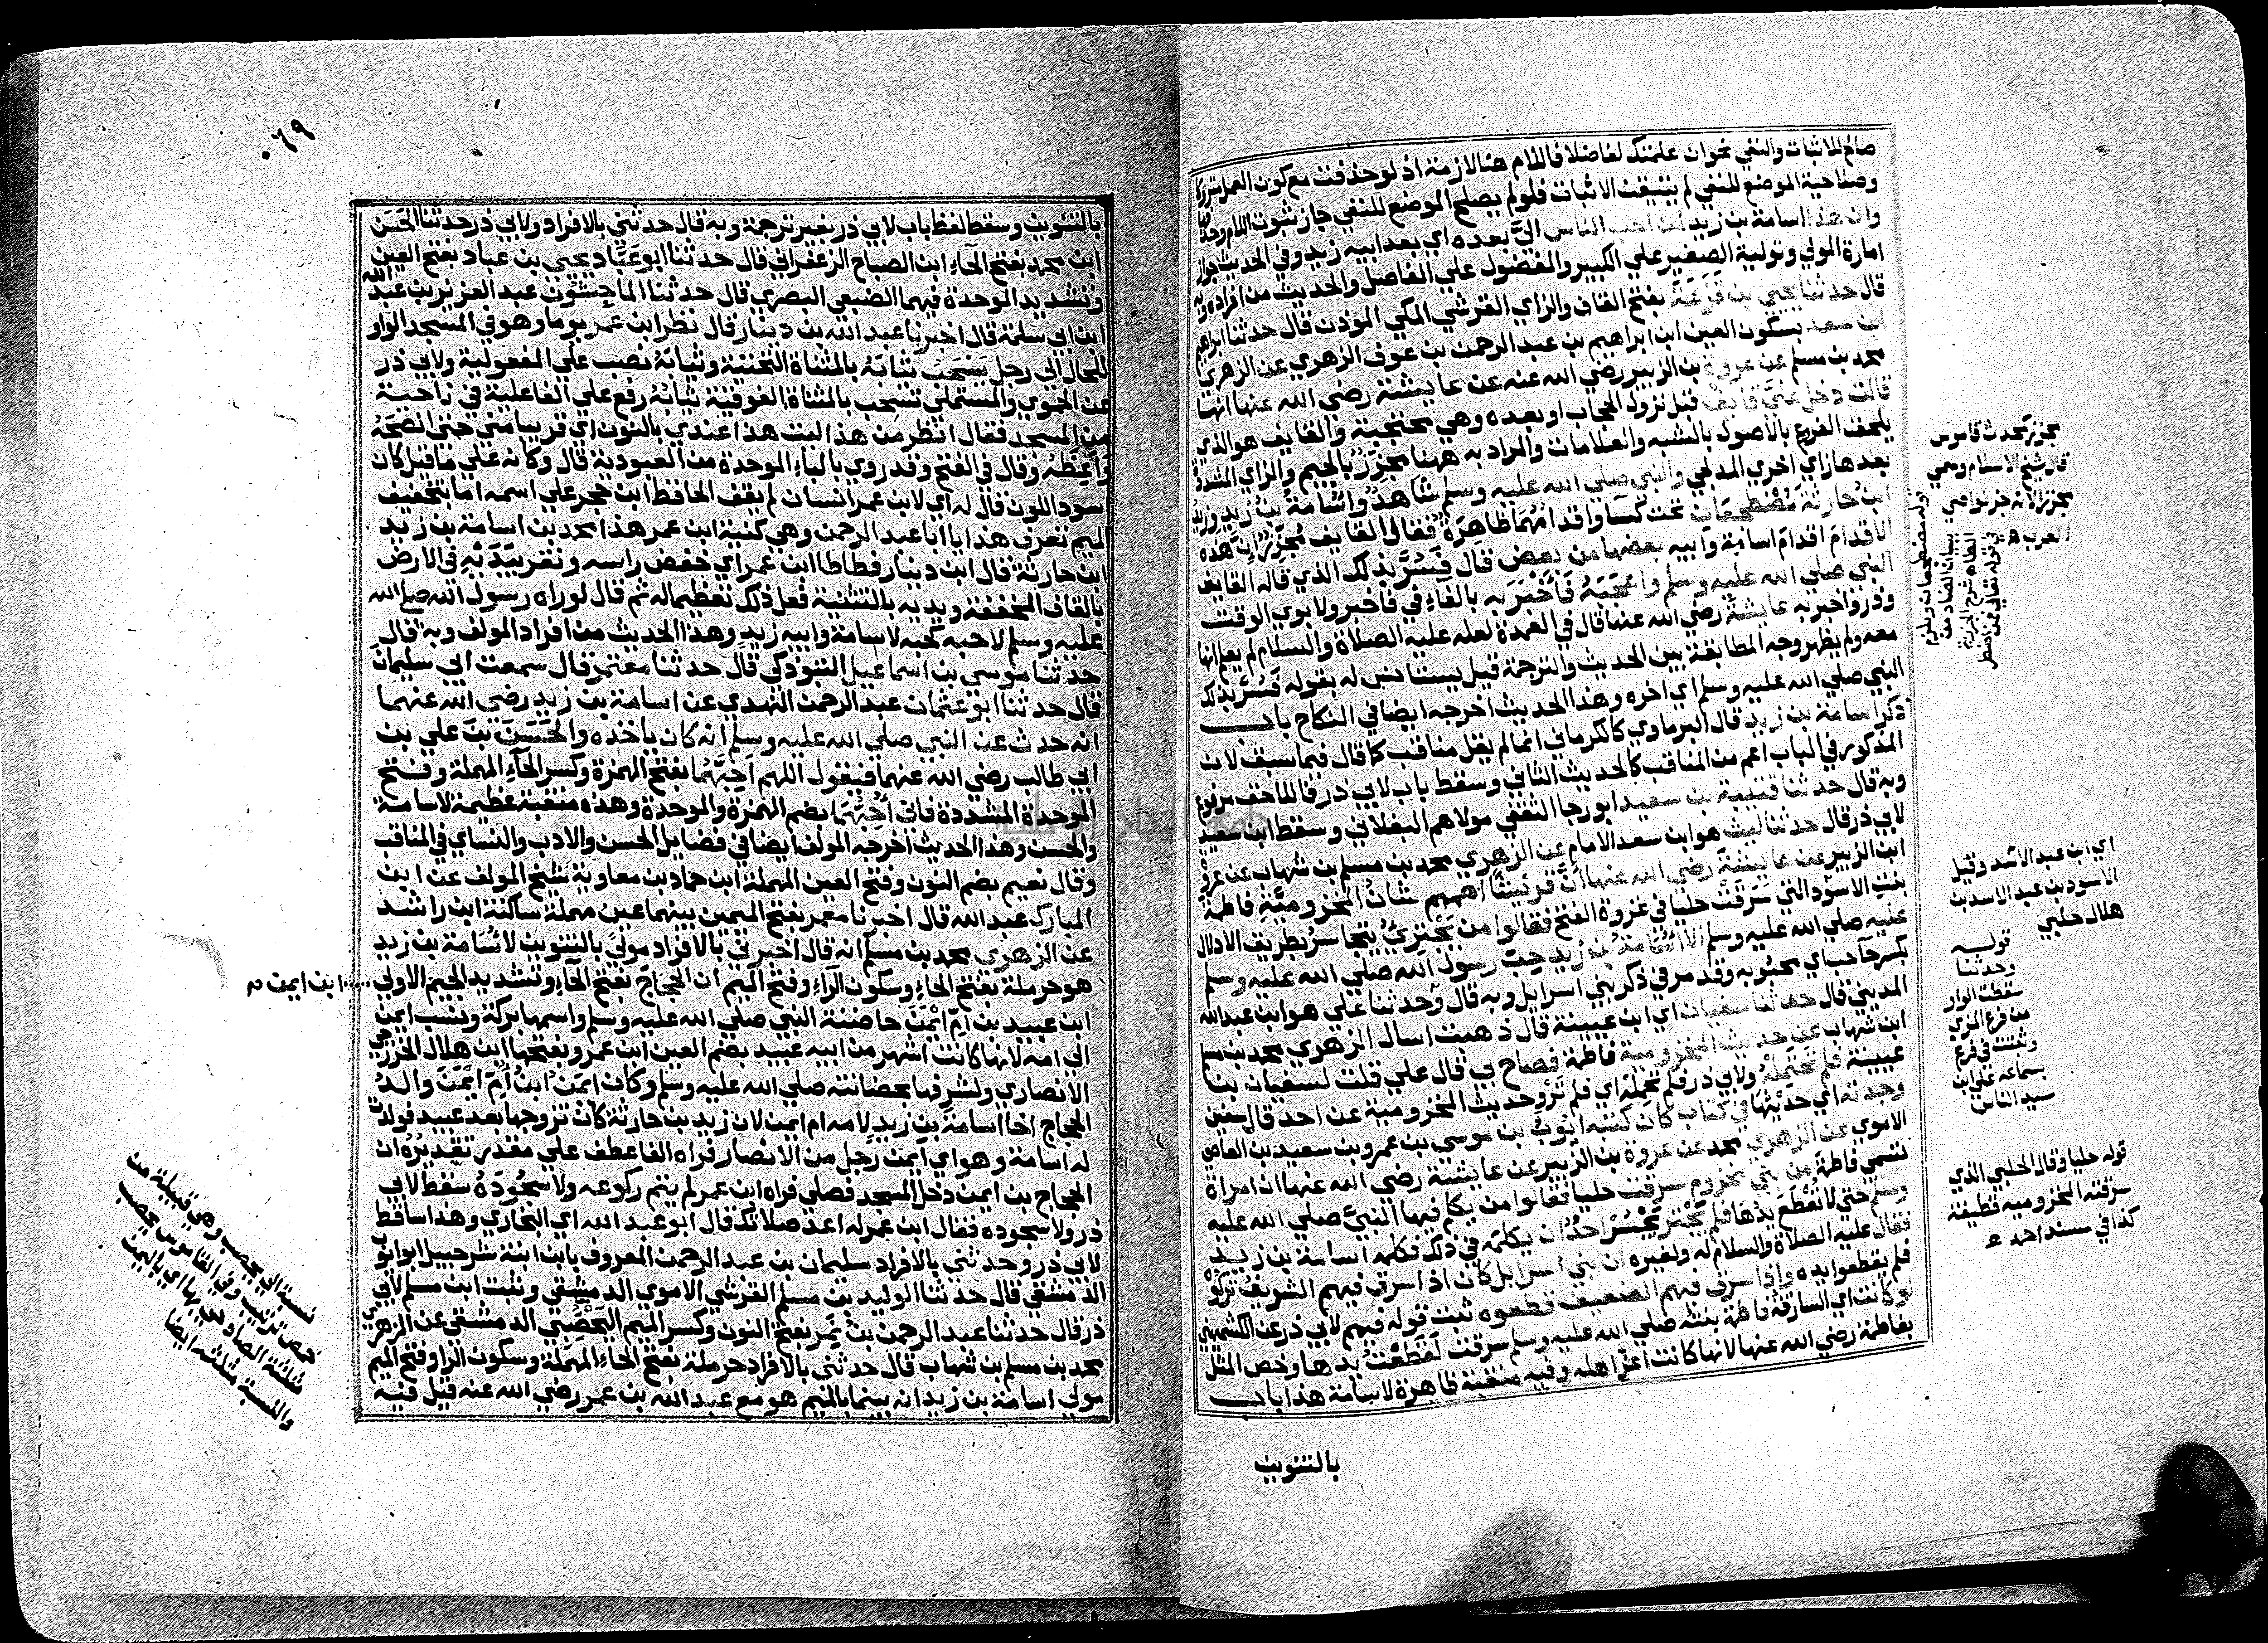 صالح للاثبات والنفي نحو ان علمتك لفاضلا فاللام هنا لازمة اذ لو حذفت مع كون العمل متروكا
وصلاحية الموضع للنفي لم يتيقن الاثبات فلو لم يصلح الموضع للنفي جاز ثبوت اللام وحذفها
وان هذا اسامة بن زيد لمن احب الناس اليّ بعده اي بعد ابيه زيد وفي الحديث جواز
امارة المولي وتولية الصغير علي الكبير والمفضول علي الفاضل والحديث من افراده وبه
قال حدثنا يحيي بن قزعة بفتح القاف والزاي القرشي المكي الموذن قال حدثنا ابراهيم
ابن سعد بسكون العين ابن ابراهيم بن عبد الرحمن بن عوف الزهري عن الزهري
محمد بن مسلم عن عروة بن الزبير رضي الله عنه عن عايشة رضي الله عنها انها
قالت دخل عليّ قايف قبل نزول الحجاب او بعده وهي محتجبة والقايف هو الذي
يلحف الفروع بالاصول بالشبه والعلامات والمراد به ههنا مجزّز بالجيم والزاي المشددة
بعدها زاي اخري المدلجي والنبي صلي الله عليه وسلم شاهد واسامة بن زيد وزيد
ابن حارثة مضطجعان تحت كسا واقدامهما ظاهرة فقال القايف مجزز ان هذه
الاقدام اقدام اسامة وابيه بعضها من بعض قال فسرّ بذلك الذي قاله القايف
النبي صلي الله عليه وسلم واعجبه فاخبر به بالفاء في فاخبر ولابوي الوقت
وذر واخبر به عايشة رضي الله عنها قال في العمدة لعله عليه الصلاة والسلام لم يعلم انها
معه ولم يظهر وجه المطابقة بين الحديث والترجمة قيل يستانس له بقوله فسر بذلك
النبي صلي الله عليه وسلم اي اخره وهذا الحديث اخرجه ايضا في النكاح باب
ذكر اسامة بن زيد قال البرماوي كالكرماني انما لم يقل مناقب كما قال فيما سبق لان
المذكور في الباب اعم من المناقب كالحديث الثاني وسقط باب لابي ذر فالماحف مرفوع
وبه قال حدثنا قتيبة بن سعيد ابو رجا الثقفي مولاهم البغلاني وسقط ابن سعيد
لابي ذر قال حدثنا ليث هو ابن سعد الامام عن الزهري محمد بن مسلم بن شهاب عن عروة
ابن الزبير عن عايشة رضي الله عنها ان قريشا اهمهم شان المخزومية فاطمة
بنت الاسود التي سرقت حليا في غزوة الفتح فقالوا من يجتري يتجاسر بطريق الادلال
عليه صلي الله عليه وسلم الا اسامة بن زيد حب رسول الله صلي الله عليه وسلم
بكسر حا حب اي محبوبه وقد مر في ذكر بني اسرايل وبه قال وحدثنا علي هو ابن عبد الله
المديني قال حدثنا سفيان اي ابن عيينة قال ذهبت اسال الزهري محمد بن مسلم
ابن شهاب عن حديث المخزومية فاطمة فصاح بي قال علي قلت لسفيان بن
عيينة فلم تحتمله ولابي ذر فلم تحمله اي فلم ترو حديث المخزومية عن احد قال سفين
وجدته اي حديثها في كتاب كان كتبه ايوب بن موسي بن عمرو بن سعيد بن العاصي
الاموي عن الزهري محمد عن عروة بن الزبير عن عايشة رضي الله عنها ان امراة
تسمي فاطمة من بني مخزوم سرقت حليا فقالوا من يكلم فيها النبي صلي الله عليه
وسلم حتي لا تقطع يدها فلم يجتر يجسر احد ان يكلمه في ذلك فكلمه اسامة بن زيد
فقال عليه الصلاة والسلام له ولغيره ان بني اسرايل كان اذا سرق فيهم الشريف تركوه
فلم يقطعوا يده واذا سرق فيهم الضعيف قطعوه ثبت قوله فيهم لابي ذر عن الكشميهني
لو كانت اي السارقة فاطمة بنته صلي الله عليه وسلم سرقت لقطعت يدها وخص المثل
بفاطمة رضي الله عنها لانها كانت اعز اهله وفيه منقبة ظاهرة لاسامة هذا باب
بالتنوين
مجزز كمحدث قاموس
قال شيخ الاسلام وسمي
مجززا لانه جز نواصي
العرب
اي ابن عبد الاسد وقيل
الاسود بن عبد الاسد بن
هلال حلبي
قوله
وحدثنا
سقطت الواو
من فرع المزي
وثبتت في فرع
بسماعه علي ابن
سيد الناس
قوله حليا وقال الحلبي الذي
سرقته المخزومية قطيفة
كذا في مسند احمد
٠٦٩
بالتنوين وسقط لفظ باب لابي ذر بغير ترجمة وبه قال حدثني بالافراد ولابي ذر حدثنا الحسن
ابن محمد بفتح الحاء ابن الصباح الزعفراني قال حدثنا ابو عبّاد يحيي بن عباد بفتح العين
وتشديد الموحدة فيهما الضبعي البصري قال حدثنا الماجشون عبد العزيز بن عبد الله
ابن ابي سلمة قال اخبرنا عبد الله بن دينار قال نظر ابن عمر يوما وهو في المسجد الواو
للحال الي رجل يسحب ثيابه بالمثناة التحتية وثيابه نصب علي المفعولية ولابي ذر
عن الحموي والمستملي تسحب بالمثناة الفوقية ثيابه رفع علي الفاعلية في ناحية
من المسجد فقال انظر من هذا ليت هذا عندي بالنون اي قريبا مني حتي انصحه
واعظه وقال في الفتح وقد روي بالباء الموحدة من العبودية قال وكانه علي ما قيل كان
اسود اللون قال له اي لابن عمر انسان لم يقف الحافظ ابن حجر علي اسمه اما بتخفيف
الميم تعرف هذا يا ابا عبد الرحمن وهي كنية ابن عمر هذا محمد بن اسامة بن زيد
ابن حارثة قال ابن دينار فطاطا ابن عمر اي خفض راسه ونقر بيديه في الارض
بالقاف المخففة ويديه بالتثنية فعل ذلك تعظيما له ثم قال لو راه رسول الله صلي الله
عليه وسلم لاحبه كحبه لاسامة وابيه زيد وهذا الحديث من افراد المولف وبه قال
حدثنا موسي بن اسماعيل التبوذكي قال حدثنا معتمر قال سمعت ابي سليمان
قال حدثنا ابو عثمان عبد الرحمن النهدي عن اسامة بن زيد رضي الله عنهما
انه حدث عن النبي صلي الله عليه وسلم انه كان ياخذه والحسن بن علي بن
ابي طالب رضي الله عنهما فيقول اللهم احبهما بفتح الهمزة وكسر الحاء المهملة وفتح
الموحدة المشددة فاني احبهما بضم الهمزة والموحدة وهذه منقبة عظيمة لاسامة
والحسن وهذا الحديث اخرجه المولف ايضا في فضايل الحسن والادب والنساي في المناقب
وقال نعيم بضم النون وفتح العين المهملة ابن حماد بن معاوية شيخ المولف عن ابن
المبارك عبد الله قال اخبرنا معمر بفتح الميمين بينهما عين مهملة ساكنة ابن راشد
عن الزهري محمد بن مسلم انه قال اخبرني بالافراد مولي بالتنوين لاسامة بن زيد
هو حرملة بفتح الحاء وسكون الراء وفتح الميم ان الحجاج بفتح الحاء وتشديد الجيم الاولي
ابن ايمن
ابن عبيد بن ام ايمن حاضنة النبي صلي الله عليه وسلم واسمها بركة ونسب ايمن
الي امه لانها كانت اشهر من ابيه عبيد بضم العين ابن عمرو بفتحها ابن هلال الخزرجي
الانصاري ولشرفها بحضانته صلي الله عليه وسلم وكان ايمن ابن ام ايمن والد
الحجاج اخا اسامة بن زيد لامه ام ايمن لان زيد بن حارثة كان تزوجها بعد عبيد فولدت
له اسامة وهو اي ايمن رجل من الانصار فراه الفا عطف علي مقدر تقديره ان
الحجاج بن ايمن دخل المسجد فصلي فراه ابن عمر لم يتم ركوعه ولا سجوده سقط لابي
ذر ولا سجوده فقال ابن عمر له اعد صلاتك قال ابو عبد الله اي البخاري وهذا ساقط
لابي ذر وحدثني بالافراد سليمان بن عبد الرحمن المعروف بابن ابنة شرحبيل ابو ايوب
الدمشقي قال حدثنا الوليد بن مسلم القرشي الاموي الدمشقي وثبت ابن مسلم لابي
ذر قال حدثنا عبد الرحمن بن نمر بفتح النون وكسر الميم اليحصبي الدمشقي عن الزهري
محمد بن مسلم بن شهاب قال حدثني بالافراد حرملة بفتح الحاء المهملة وسكون الرا وفتح الميم
مولي اسامة بن زيد انه بينما بالميم هو مع عبد الله بن عمر رضي الله عنه قيل فيه
نسبة الي يحصب وهي قبيلة من
حمير وفي القاموس يحصب
مثلثة الصاد
والنسبة مثلثة ايضا